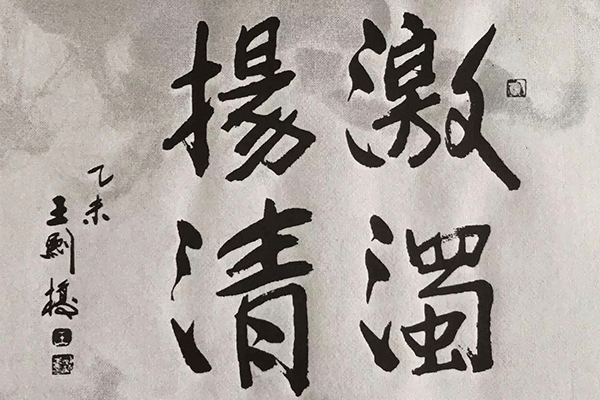 激濁
揚清
乙未
王剛